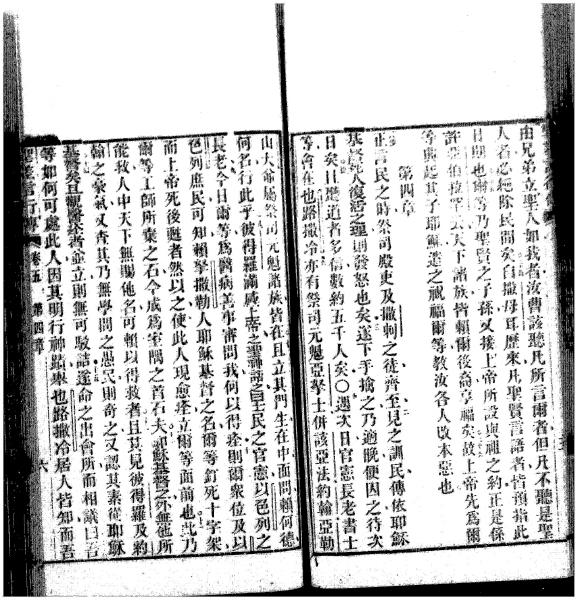 由兄弟立聖人如我者汝曹該聽凡所言爾者但凡不聽是聖
人者必絕除民間矣自撒母耳歷來凡聖賢言語者皆預指此
日期也爾等乃聖賢之子孫又接上帝所設與祖之約正是係
許亞伯拉罕云天下諸族皆賴爾後裔享福矣故上帝先爲爾
等興起其子耶穌遣之祝福爾等教汝各人改本惡也
第四章
正言民之時祭司殿吏及撒吐之徒齊至見之訓民傳依耶穌
基督死人復活之理則發怒也矣遂下手擒之乃適晚便囚之待次
日矣且聽道者多信數約五千人矣○遇次日官憲長老書士
等會在也路撒冷亦有祭司元魁亞拏士併該亞法約翰亞勒
山大並屬祭司元魁諸族皆在且立其門生在中面問賴何德
何名行此乎彼得羅滿感上帝之聖神語之曰王民之官憲以色列之
長老今日爾等爲醫病善事審問我何以得痊則爾眾位及以
色列庶民可知賴拏撒勒人耶穌基督之名爾等釘死十字架
而上帝死後甦者然以之使此人現愈痊立爾等面前也此乃
爾等工師所棄之石今成爲室隅之首石夫耶穌基督之外無他所
能救人中天下無賜他名可賴以得救者且其見彼得羅及約
翰之豪氣又查其乃無學問之愚民則奇之又認其素從耶穌
基督矣且觀醫者並立則無可駁詰遂命之出會所而相議曰吾
等如何可處此人因其明行神蹟舉也路撒冷居人皆知而吾
聖差言行傳 卷五 第四章 六